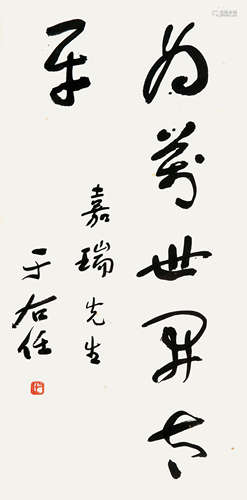 为万世开太
平
嘉瑞先生
于右任